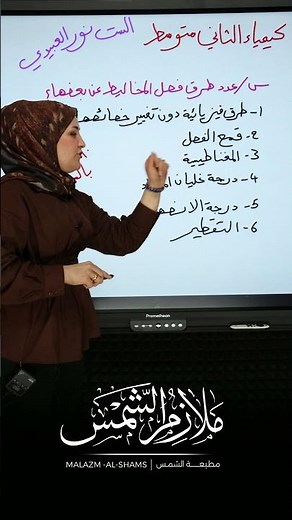 الست نور العبيدي
كيمياء الثاني متوسط
س/عدد طرق فصل المخاليط عن بعضها؟
1- طرق فيزيائية دون تغيير خصائصها
2- قمع الفصل
3- المغناطيسية
4- درجة غليان
5- درجة
6- التقطير
Promethean
ملازم الشمس
MALAZM -AL-SHAMS | مطبعة الشمس